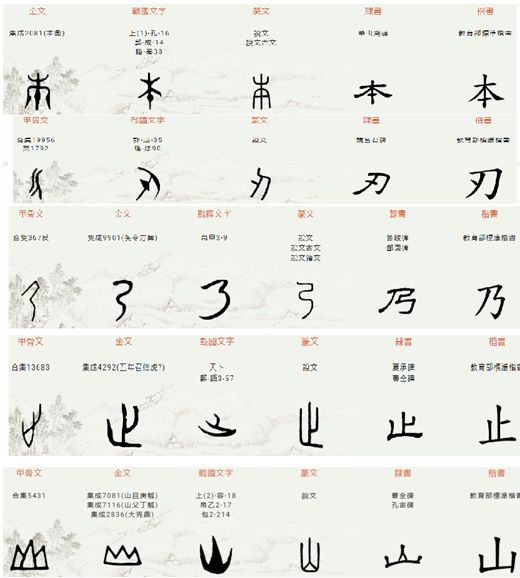 金文 戰國文字 篆文 隸書 楷書
集成2081(本鼎) 上(1)·孔·16 說文 華山廟碑 教育部標準楷書
郭·成·14 說文古文
睡·秦38
本 本
甲骨文 戰國文字 篆文 隸書 楷書
合集19956 郭·成·35 說文 教育部標準楷書
京1792 睡·法90
刃 刃
甲骨文 金文 戰國文字 篆文 隸書 楷書
合集367反 集成9901(矢令方彝) 帛甲3·9 說文 教育部標準楷書
說文古文
說文籀文
乃 乃
甲骨文 金文 戰國文字 篆文 隸書 楷書
合集13683 集成4292(五年召伯虎?) 天卜 說文 夏承碑 教育部標準楷書
郭·語3·57 曹全碑
止 止
甲骨文 金文 戰國文字 篆文 隸書 楷書
合集5431 集成7081(山且庚觚) 上(2)·容·18 說文 曹全碑 教育部標準楷書
集成7116(山父丁觚) 帛乙2·17 孔宙碑
集成2836(大克鼎) 包2·214
山 山